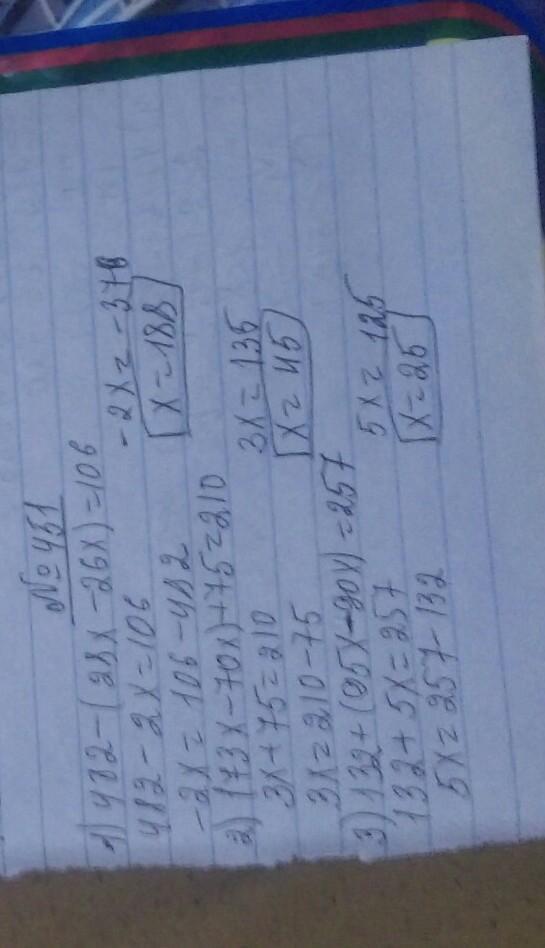 № 451
1) 482 - (28x - 26x) = 106
482 - 2x = 106
-2x = -376
-2x = 106 - 482
x = 188
2) (73x - 70x) + 75 = 210
3x + 75 = 210
3x = 135
3x = 210 - 75
x = 45
3) 132 + (95x - 90x) = 257
132 + 5x = 257
5x = 125
5x = 257 - 132
x = 25